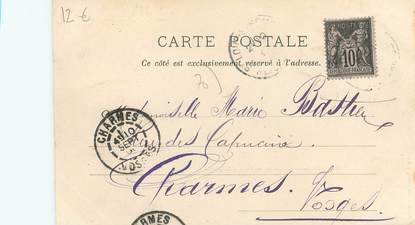 12 €
CARTE POSTALE
Ce côté est exclusivement réservé à l'adresse.
10
70
Mademoiselle Marie Bastien
des Capucins
Charmes.
Vosges
CHARMES
10
SEPT
VOSGES
CHARMES